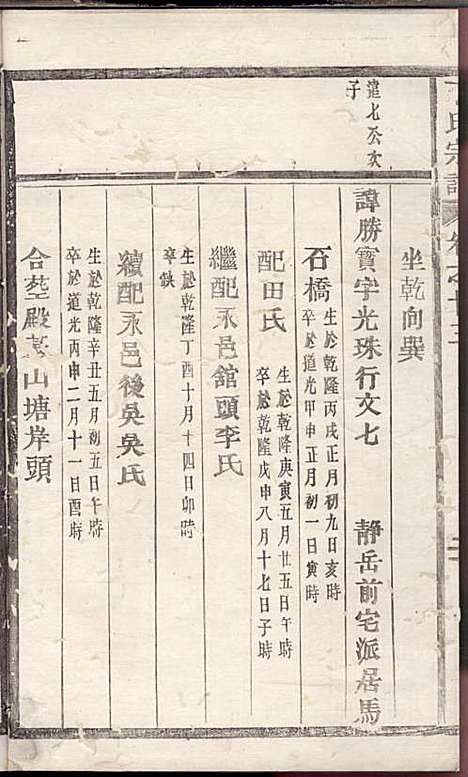 氏宗譜
坐乾向巽
遣七公次子
諱勝寶字光珠行文七 靜岳前宅派居馬
石橋
生於乾隆丙戌正月初九日亥時
卒於道光甲申正月初一日寅時
配田氏
生於乾隆庚寅五月廿五日午時
卒於乾隆戊申八月十七日子時
繼配永邑舘頭李氏
生於乾隆丁酉十月十四日卯時
卒缺
續配永邑後吳吳氏
生於乾隆辛丑五月初五日午時
卒於道光丙申二月十一日酉時
合塟殿塟山塘岸頭